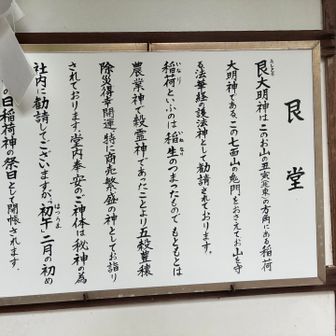 艮堂
艮大明神はこのお山の丑寅(東北)の方角にある稲荷
大明神である、この七面山の鬼門をおさえてお山を守
る法華経の護法神として勧請されております。
稲荷といふのは稲生のつまったもので、もともとは
農業神で穀霊神であったことより五穀豊穣
除災得幸開運、特に商売繁盛の神としてお詣り
されております。堂内奉安のご神体は秘神の為
社内に勧請してございますが、初午、二月の初め
の日稲荷神の祭日として開帳されます.